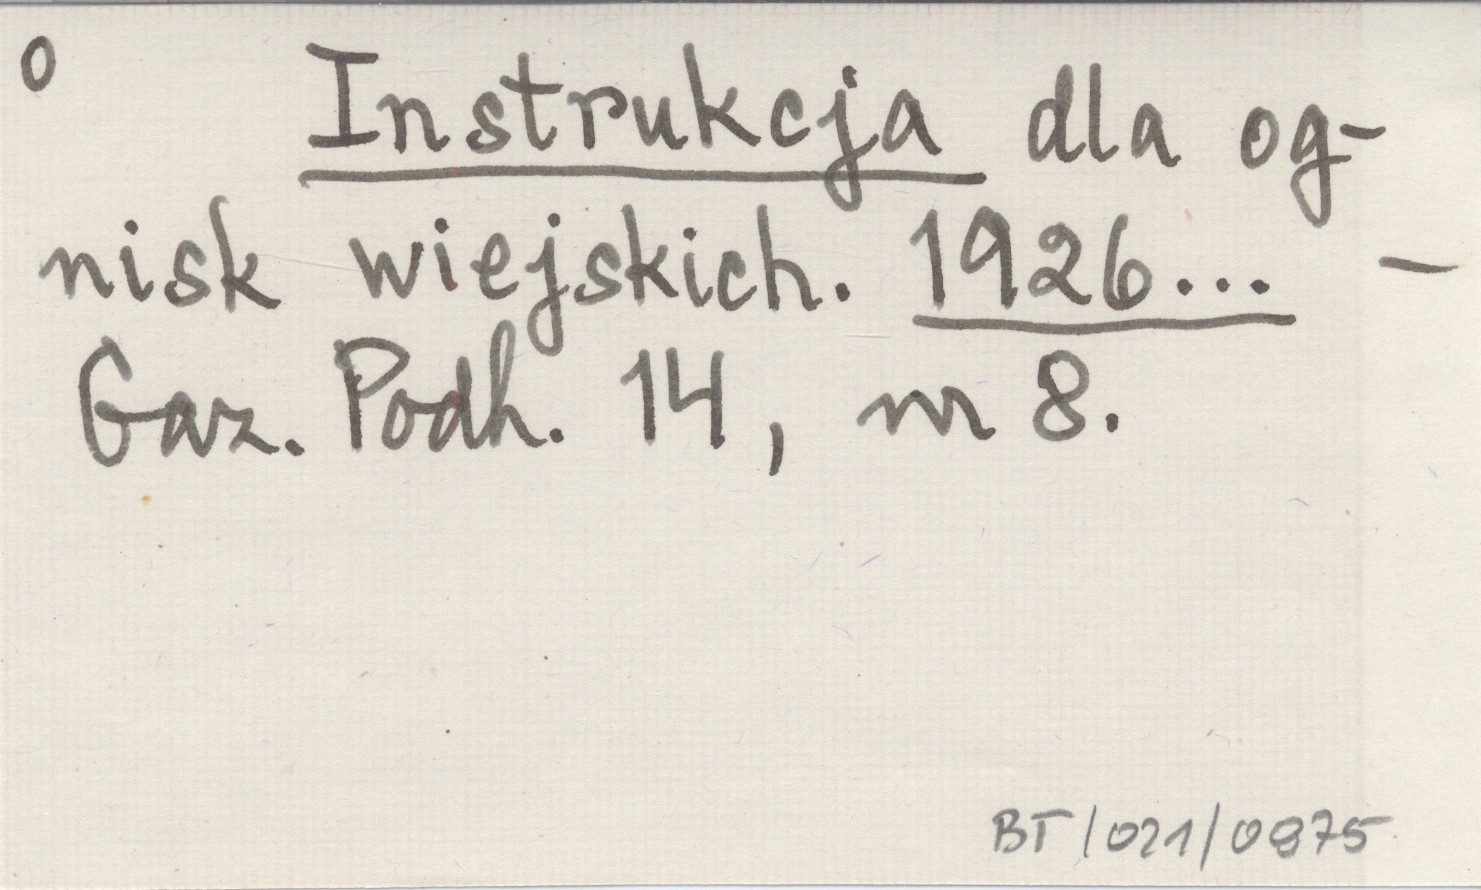 o
Instrukcja dla og-
nisk wiejskich. 1926... —
Gaz. Podh. 14, nr 8.
BT/021/0875